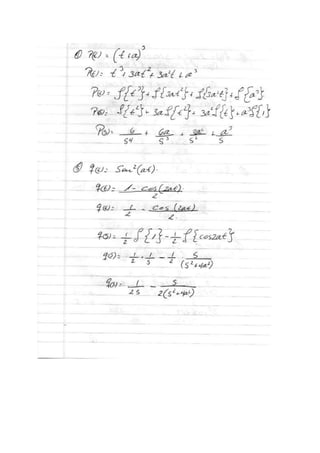 ① P(t) = (t+a)³
P(t) = t³ + 3at² + 3a²t + a³
P(s) = ℒ{t³} + ℒ{3at²} + ℒ{3a²t} + ℒ{a³}
P(s) = ℒ{t³} + 3aℒ{t²} + 3a²ℒ{t} + a³ℒ{1}
P(s) = 6/s⁴ + 6a/s³ + 3a²/s² + a³/s
q(t) = Sen²(at)
q(t) = 1 - cos(2at) / 2
q(t) = 1/2 - cos(2at)/2
q(s) = 1/2 ℒ{1} - 1/2 ℒ{cos2at}
q(s) = 1/2 · 1/s - 1/2 s/(s²+4a²)
q(s) = 1/2s - s/2(s²+4a²)